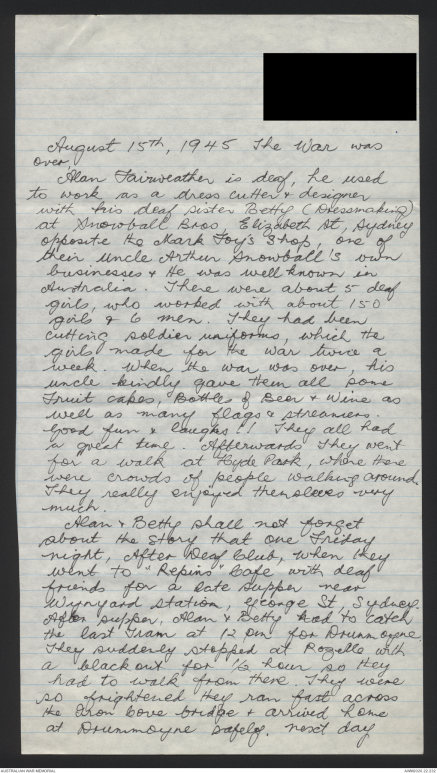 August 15th, 1945 The War was
over.
Alan Fairweather is deaf, he used
to work as a dress cutter & designer
with his deaf sister Betty (Dressmaking)
at Snowball Bros, Elizabeth St, Sydney
opposite the Mark Foy's Shop, one of
their uncle Arthur Snowball's own
businesses & He was well known in
Australia. There were about 5 deaf
girls, who worked with about 150
girls & 6 men. They had been
cutting soldier uniforms, which the
girls made for the war twice a
week. When the war was over, his
uncle kindly gave them all some
Fruit cakes, Bottles of Beer & Wine as
well as many flags & streamers.
Good fun & laughs!! They all had
a great time. Afterwards They went
for a walk at Hyde Park, where there
were crowds of people walking around.
They really enjoyed themselves very
much.
Alan & Betty shall not forget
about the story that one Friday
night, After Deaf Club, when they
went to "Repins" Cafe with deaf
friends for a late supper near
Wynyard Station, George St, Sydney.
After supper, Alan & Betty had to catch
the last Tram at 12 pm for Drummoyne.
They suddenly stopped at Rozelle with
a blackout for ½ hour so they
had to walk from there. They were
so frightened they ran fast across
the Iron Cove bridge & arrived home
at Drummoyne safely. next day
AUSTRALIAN WAR MEMORIAL